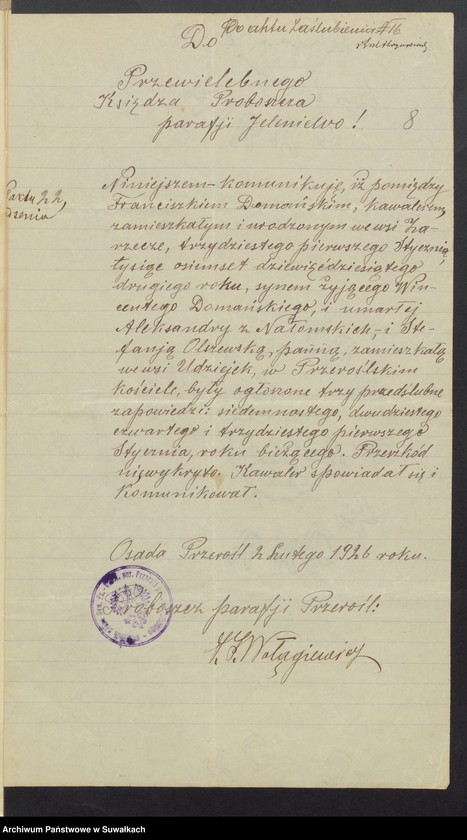 Do aktu zaślubienia № 16
Do
Przewielebnego
Księdza Proboszcza
parafji Jeleniewo!
8
Niniejszem komunikuję, iż pomiędzy
Franciszkiem Domańskim, kawalerem,
zamieszkałym i urodzonym we wsi Za-
rzecze, trzydziestego pierwszego Stycznia,
tysiąc osiemset dziewięćdziesiątego
drugiego roku, synem żyjącego Win-
centego Domańskiego, i umarłej
Aleksandry z Natomskich, i Ste-
fanją Olszewską, panną, zamieszkałą
we wsi Udziejek, w Przeroślskim
kościele, były ogłoszone trzy przedślubne
zapowiedzi: siedemnastego, dwudziestego
czwartego i trzydziestego pierwszego
Stycznia, roku bieżącego. Przeszkód
niewykryto. Kawaler spowiadał się i
komunikował.
Osada Przerośl 2 Lutego 1926 roku.
Proboszcz parafji Przerośl:
Archiwum Państwowe w Suwałkach